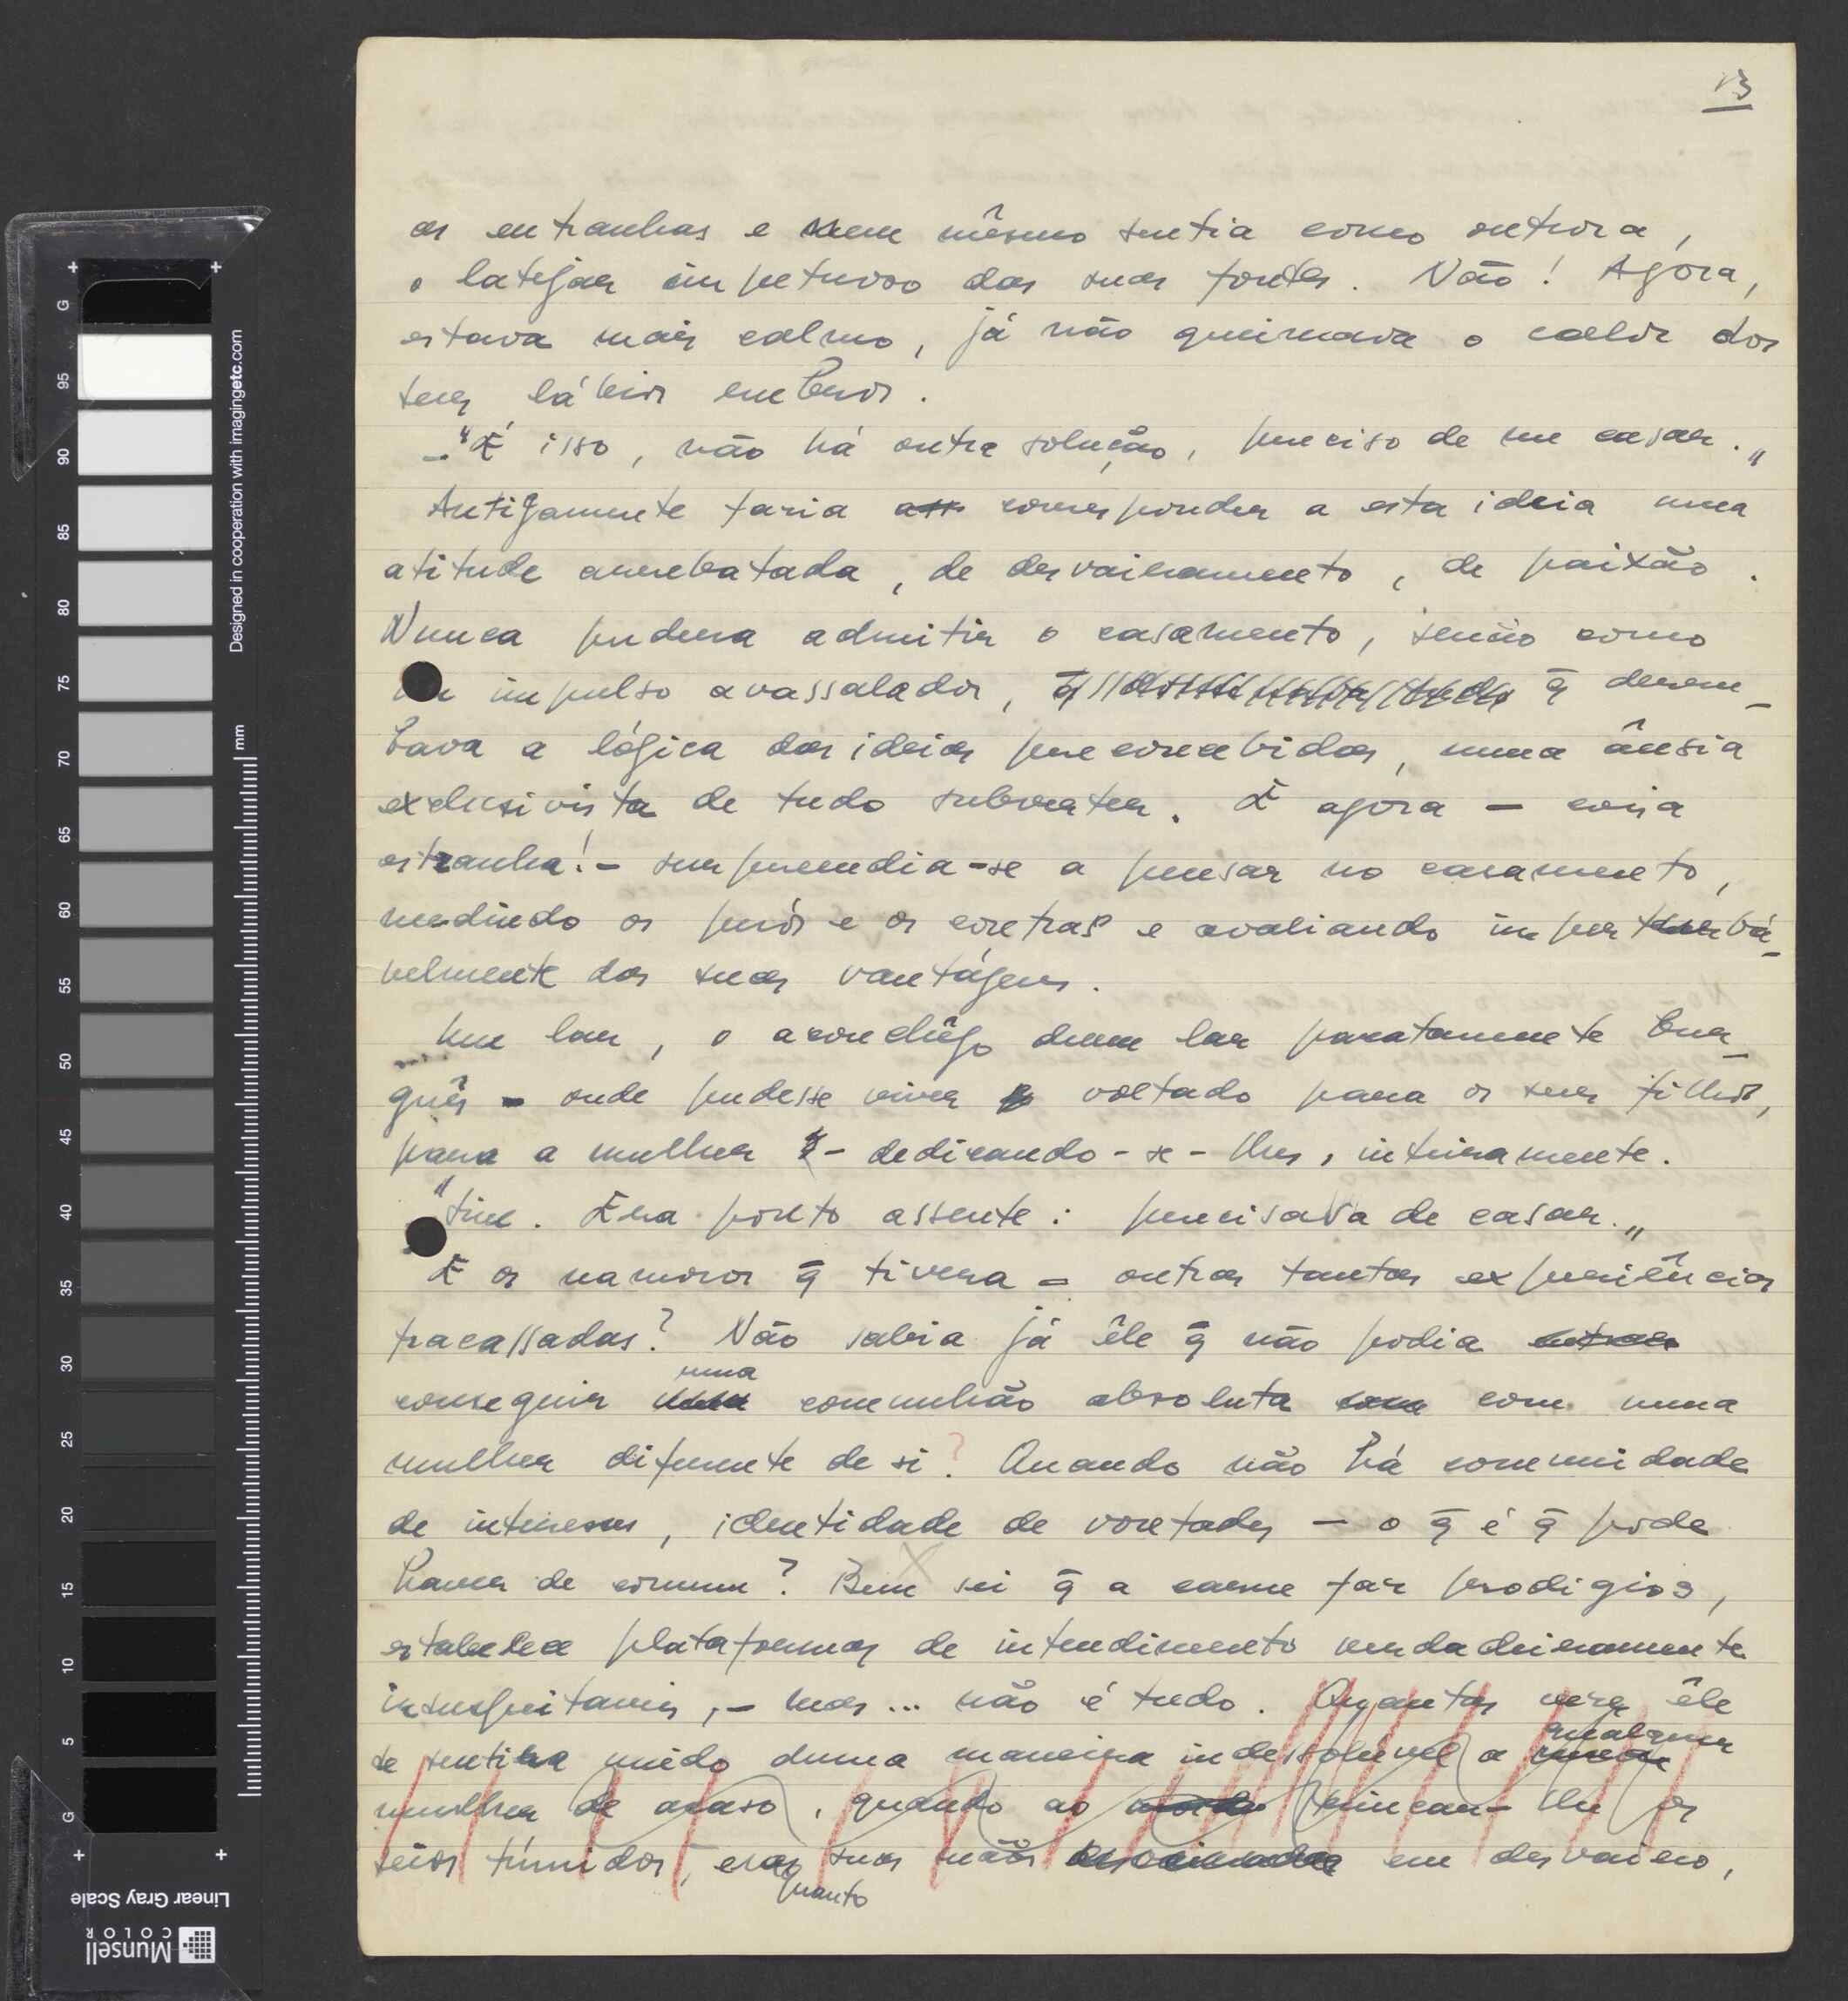 13
as entranhas e nem mêsmo sentia como outrora,
o latejar impetuoso das suas fontes. Não! Agora,
estava mais calmo, já não queimava o calor dos
seus lábios
_"É isso, não há outra solução, preciso de me casar."
Antigamente faria corresponder a esta ideia uma
atitude arrebatada, de desvairamento, de paixão.
Nunca pudera admitir o casamento, senão como
um impulso avassalador, q̄ derru-
bava a lógica das ideias preconcebidas, numa ânsia
exclusivista de tudo subverter. E agora – coisa
estranha! – surpreendia-se a pensar no casamento,
medindo os prós e os contras e avaliando impertubá-
velmente das suas vantágens.
Um lar, o aconchêgo dum lar pacatamente bur-
guês – onde pudesse viver voltado para os seus filhos,
para a mulher – dedicando-se-lhes, inteiramente.
"Sim. Era ponto assente: precisava de casar."
E os namoros q̄ tivera – outras tantas experiências
fracassadas? Não sabia já êle q̄ não podia
conseguir uma comunhão absoluta com uma
mulher diferente de si? Quando não há comunidade
de interesses, identidade de vontades – o q̄ é q̄ pode
haver de comum? Bem sei q̄ a carne faz prodigios,
estabelece plataformas de intendimento verdadeiramente
insuspeitaveis, – mas... não é tudo. Quantas vezes êle
se sentira unido duma maneira indessoluvel a qualquer
mulher de acaso, quando ao trincar-lhe os
seios túmidos, e as suas mãos em desvaireio,
quanto
Designed in cooperation with imagingetc.com
mm
G
95
90
85
80
75
70
65
60
55
50
45
40
35
30
25
20
15
10
5
G
Linear Gray Scale
Munsell
COLOR